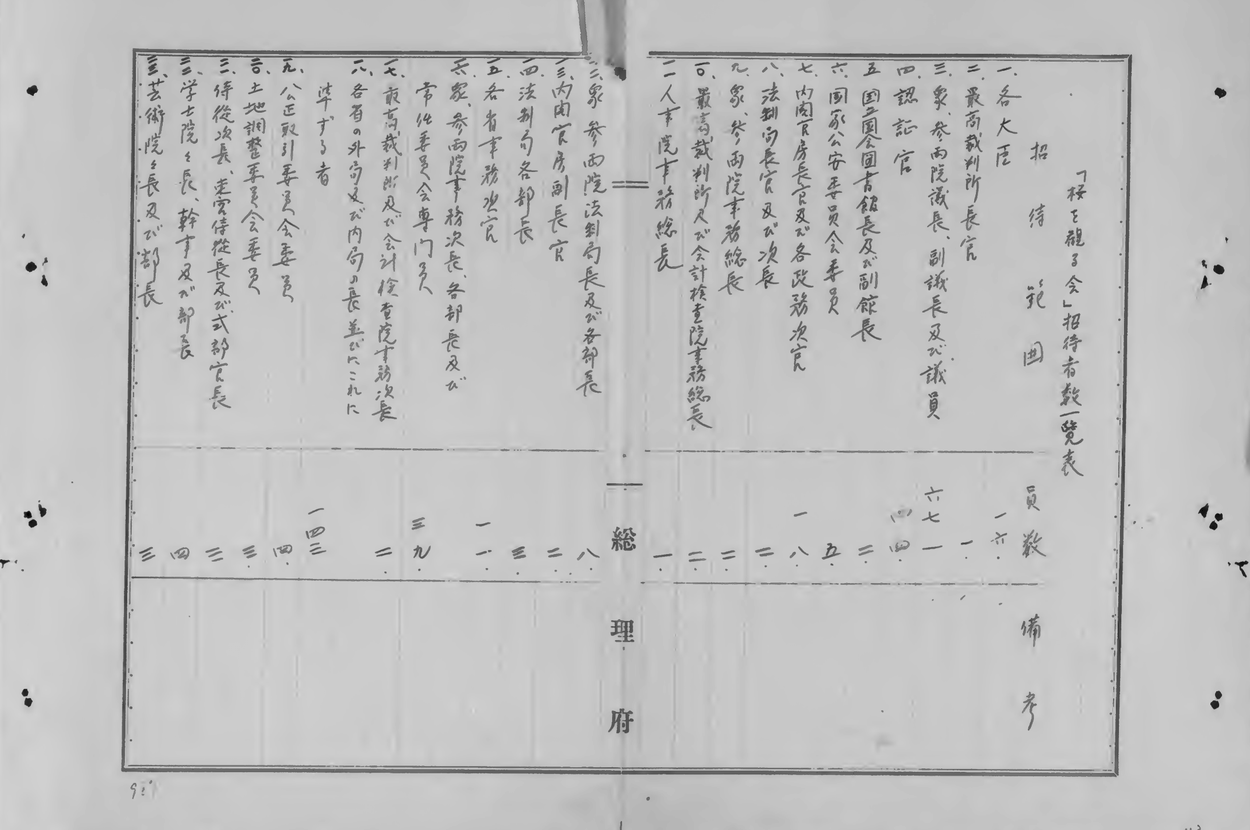 「桜を観る会」招待者数一覧表
招待範囲 員数 備考
一、各大臣 一六
二、最高裁判所長官 一
三、衆、参両院議長、副議長及び議員 六七一
四、認証官 四四
五、国立国会図書館長及び副館長 二
六、国家公安委員会委員 五
七、内閣官房長官及び各政務次官 一八
八、法制局長官及び次長 二
九、衆、参両院事務総長 二
一〇、最高裁判所及び会計検査院事務総長 二
一一、人事院事務総長 一
総理府
一二、衆、参両院法制局長及び各部長 八
一三、内閣官房副長官 二
一四、法制局各部長 三
一五、各省事務次官 一一
一六、衆、参両院事務次長、各部長及び
常任委員会専門員 三九
一七、最高裁判所及び会計検査院事務次長 二
一八、各省の外局及び内局の長並びにこれに
準ずる者 一四三
一九、公正取引委員会委員 四
二〇、土地調整委員会委員 三
二一、侍従次長、東宮侍従長及び式部官長 三
二二、学士院々長、幹事及び部長 四
二三、芸術院々長及び部長 三